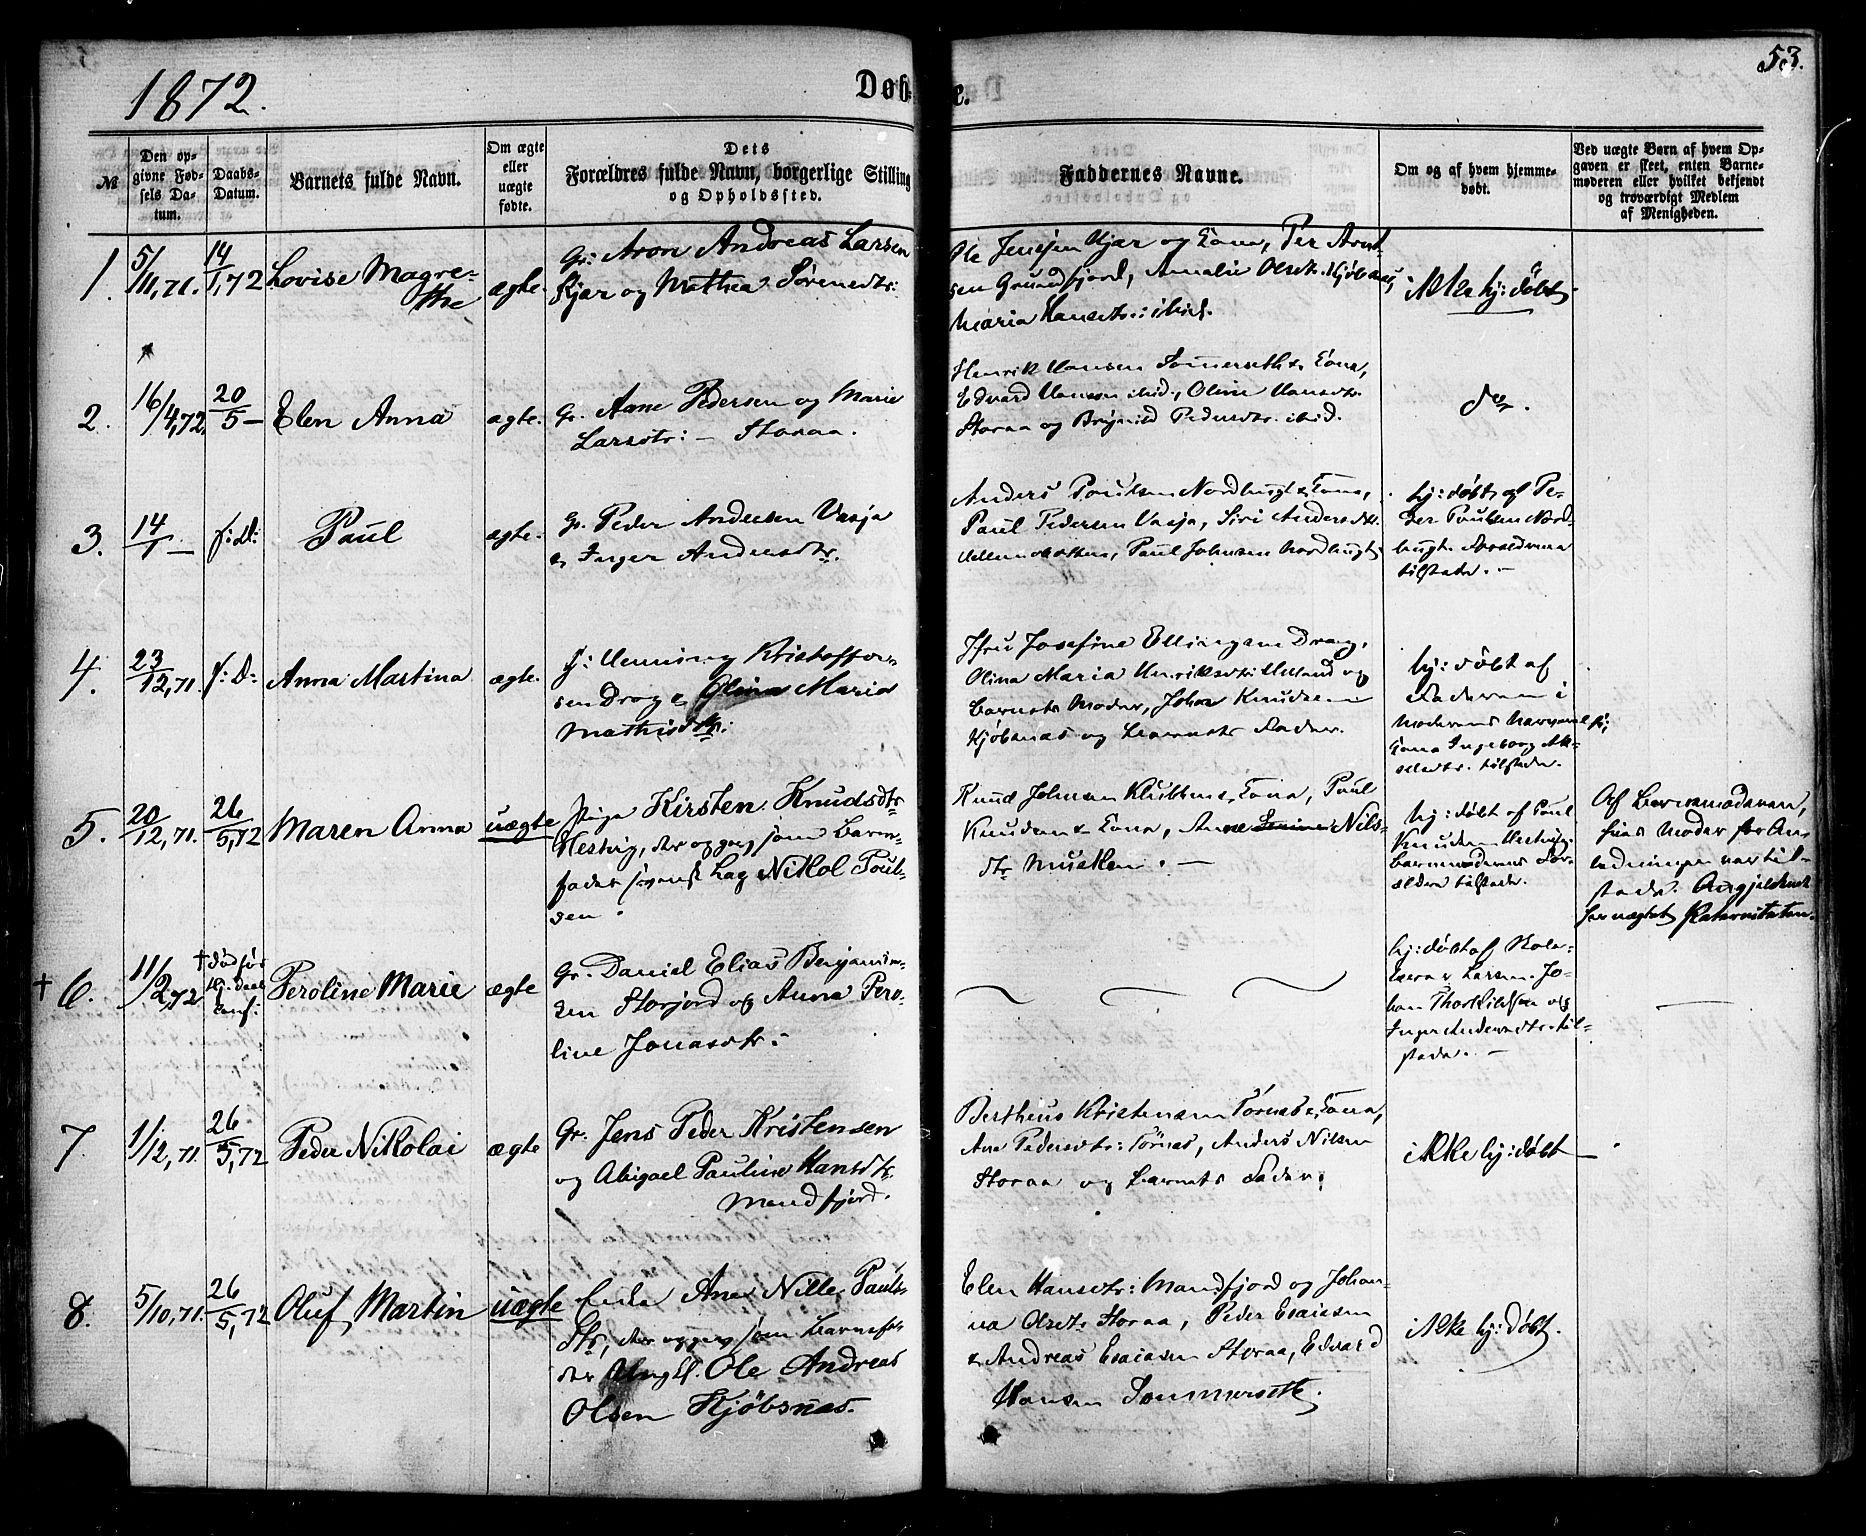 53.
1872.
Døb
e.
№
Den op-
givne Fød-
sels Da-
tum.
Daabs-
Datum.
Barnets fulde Navn.
Om ægte
eller
uægte
fødte.
Dets
Forældres fulde Navn, borgerlige Stilling
og Opholdssted.
Faddernes Navne.
Om og af hvem hjemme-
døbt.
Ved uægte Børn af hvem Op-
gaven er skeet, enten Barne-
moderen eller hvilket bekjendt
og troværdigt Medlem
af Menigheden.
1.
5/11,71.
14/1,72
Lovise Magre-
the
ægte.
Gr: Aron Andreas Larsen
Kjær og Mathea Sörensdtr:
Ole Jensen Kjær og Kona, Per Arnt-
sen Grundfjord, Amalie Olsdtr. Kjöbsnæs,
Maria Hansdtr: ibid.
ikke hj: döbt
2.
16/4,72.
20/5 —
Elen Anna
ægte.
Gr. Aane Pedersen og Marie
Larsdtr: — Storaa.
Henrik Hansen Sommerseth & Kona,
Edvard Hansen ibid., Oline Hansdtr.
Storaa og Brynild Pedersdtr. ibid.
do.
3.
14/1 —
f: D:
Paul
ægte.
Gr. Peder Andersen Vasja
& Inger Andersdtr.
Anders Poulsen Nordbugt & Kona,
Paul Pedersen Vasja, Siri Andersdtr.
Paul Johnsen Nordbugt
hj: döbt af Pe-
der Poulsen Nord-
bugt. Forældrene
tilstede. —
4.
23/12,71.
f: D:
Anna Martina
ægte.
J: Henning Kristoffer-
sen Drag & Olina Maria
Mathisdtr:
Jfru Josefine Ellingsen Drag,
Olina Maria Henriksdtr: og
Barnets Moder, Johan Knudsen
Kjöbsnæs og Barnets Fader.
hj: döbt af
Faderen i
Moderens Nærværelse,
Kona Ingeborg Ak-
selsdtr. tilstede.
5.
20/12,71.
26/5,72
Maren Anna
uægte
Pige Kirsten Knudsdtr
Hestvig, der opgav som Barne-
fader svensk Lap Nikol Poul-
sen.
Knud Johnsen Klubben & Kona, Paul
Knudsen & Kona, Anne Nils-
dtr Musken. —
hj: döbt af Paul
Knudsen Hestvig.
Barnemoderens For-
ældre tilstede.
Af Barnemoderen,
hvis Moder for An-
ledningen var til-
stede. Angjældende
benægtet Paterniteten.
† 6.
11/2,72
† död för
Peroline Marie
ægte
Gr. Daniel Elias Benjamin-
sen Storjord og Anna Pero-
line Jonasdtr:
hj: döbt af
Larsen. Jo-
han Thorkildsen og
Inger Andersdtr. til-
stede. —
7.
1/12,71.
26/5,72
Peder Nikolai
ægte
Gr. Jens Peder Kristensen
og Abigael Pauline Hansdtr
Mandfjord.
Bertheus Kristensen Törnæs & Kona,
Ane Pedersdtr: Törnæs, Anders Nilsen
Storaa og Barnets Fader.
ikke hj: döbt
8.
5/10,71.
26/5,72
Oluf Martin
uægte
Enke Ane Nille Pauls-
dtr, der opgav som Barnefa-
der Ungk. Ole Andreas
Olsen Kjöbsnæs.
Elen Hansdtr: Mandfjord og Johan-
na Olsdtr Storaa, Peder Esaiasen
& Andreas Esaiasen Storaa, Edvard
Hansen Sommerseth.
ikke hj: döbt.